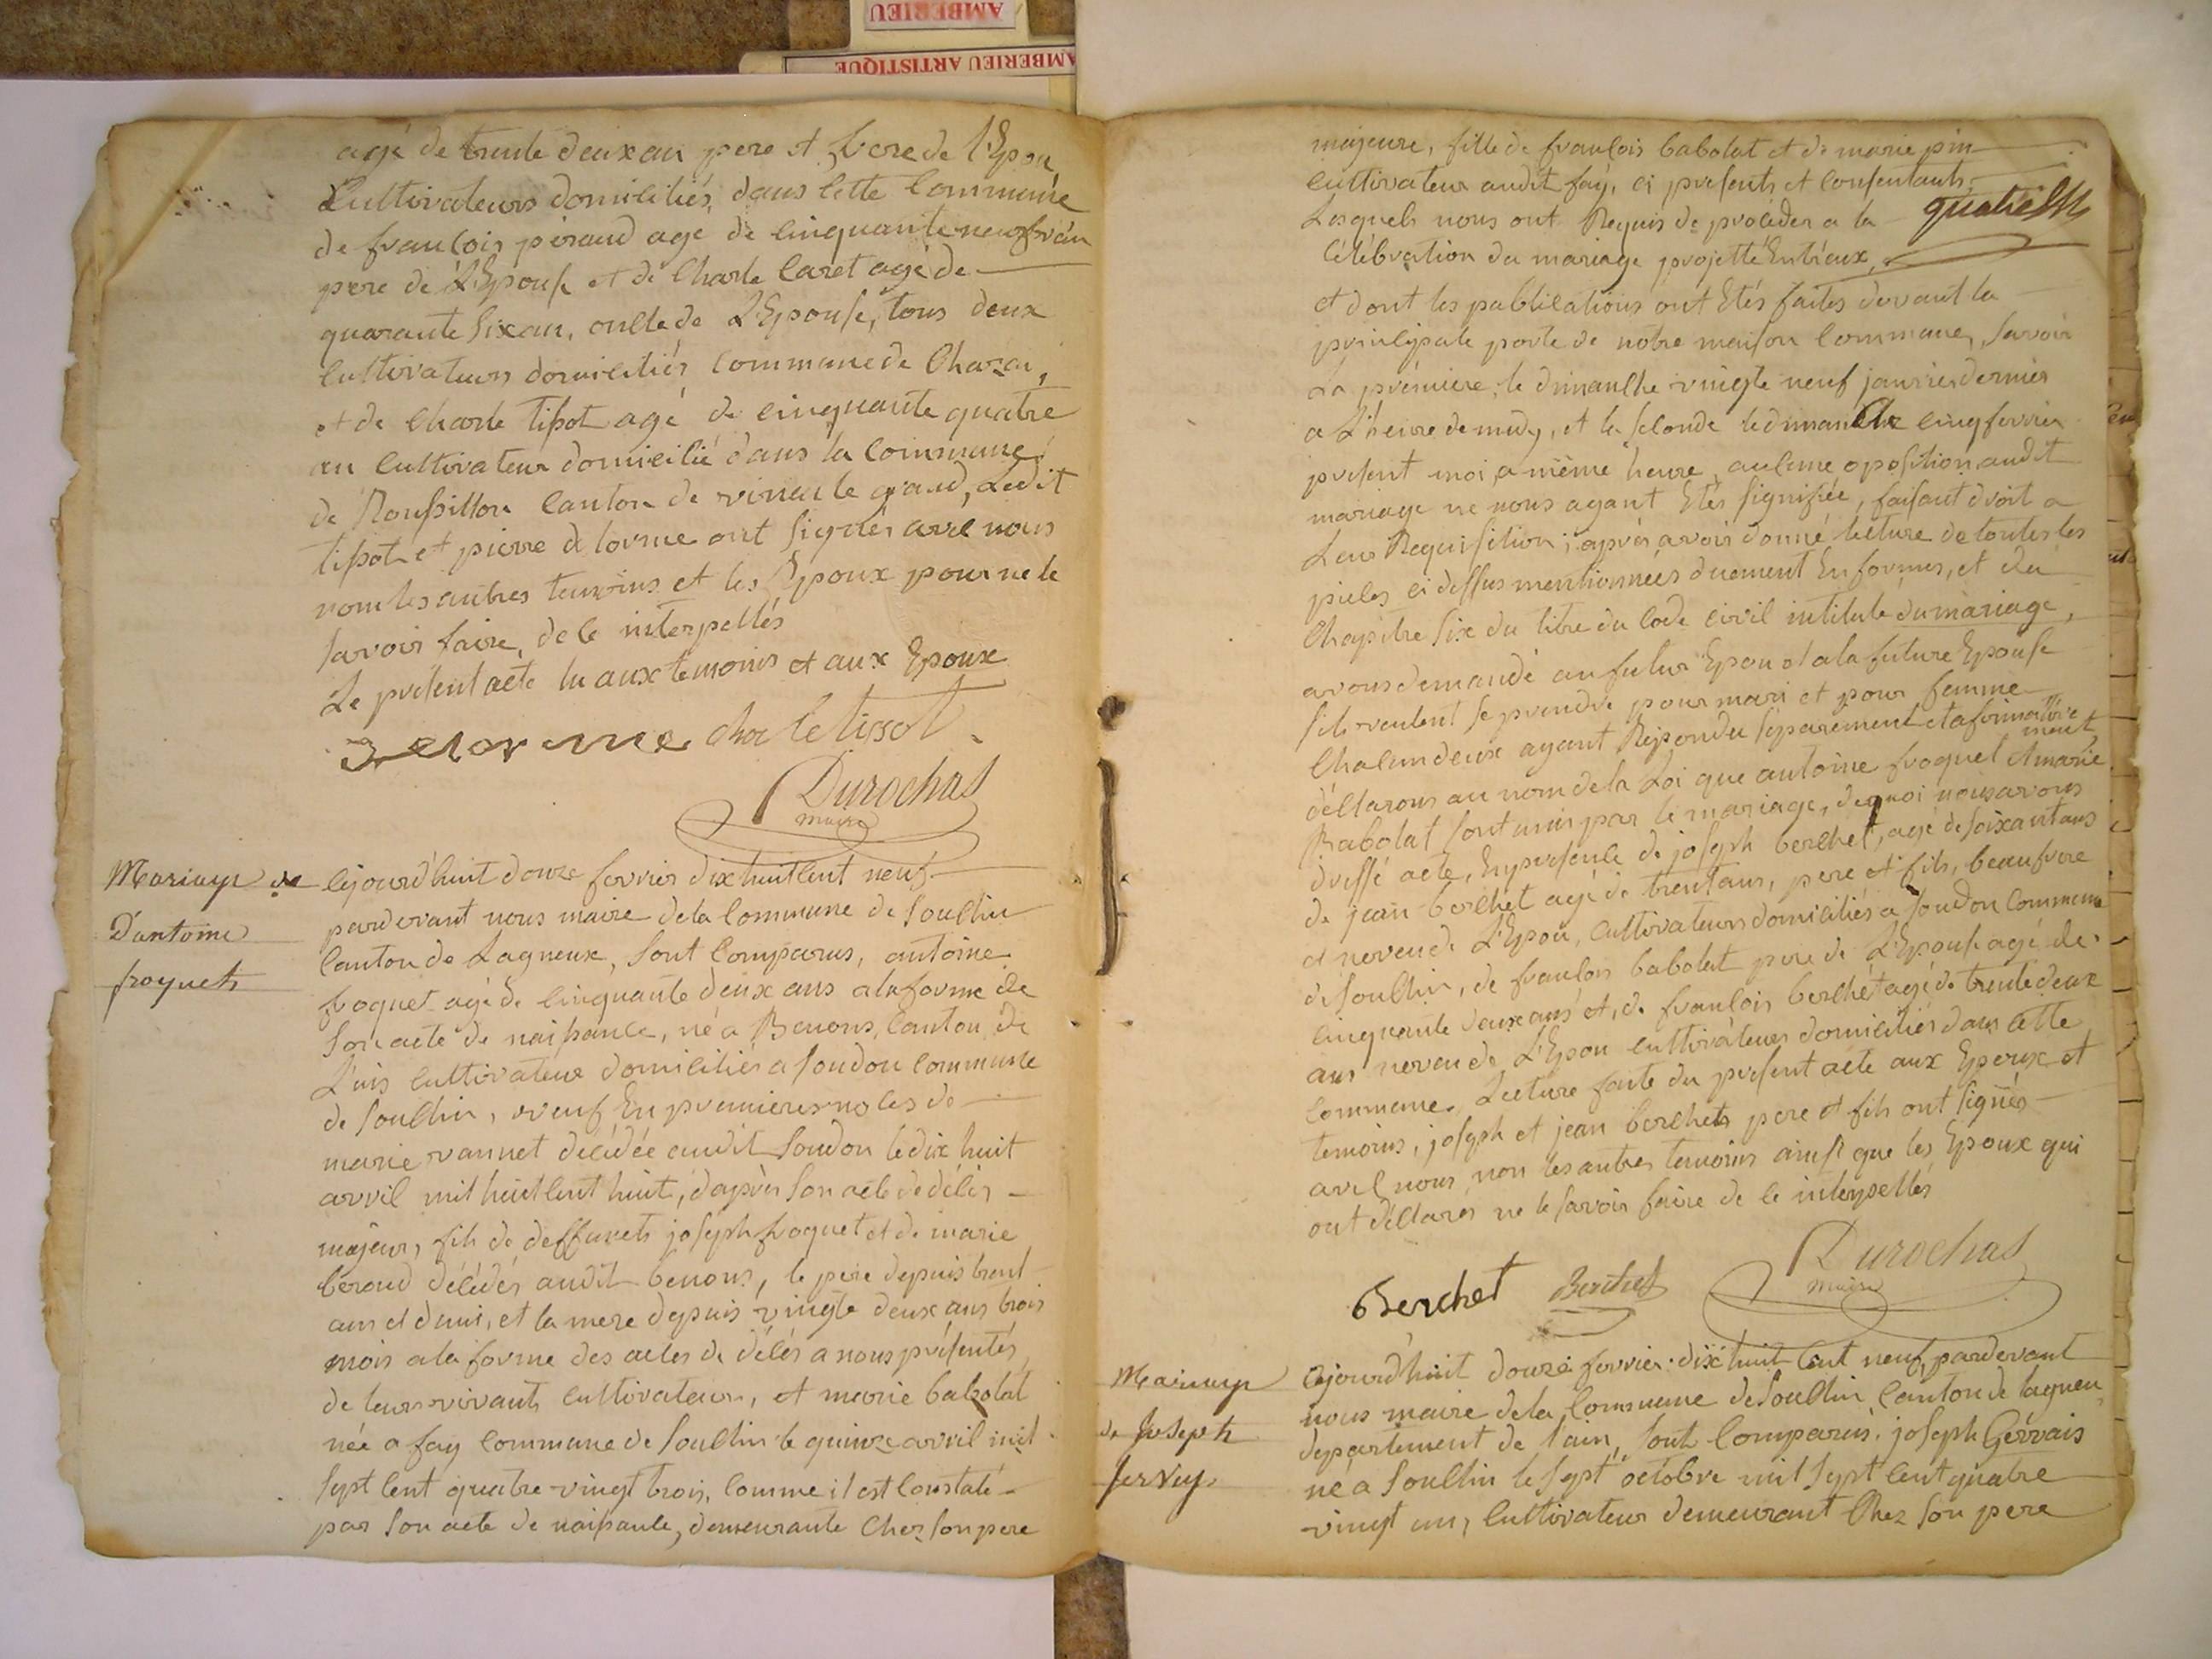 AMBERIEU
AMBERIEU ARTISTIQUE
agé de trente deux an pere et frere de l'Epou
Cultivateurs domiciliés, dans cette Commune
de françois péraud age de cinquante neuf an
pere de L'Epouse et de Charle Caret agé de
quarante Six an, oncle de L'Epouse, tous deux
Cultivateurs domiciliés Commune de Chazai,
et de Charle tissot agé de cinquante quatre
an Cultivateur domicilié dans la Commune
de Roussillon Canton de virieu le grand, Ledit
tissot et pierre de lorme ont signés avec nous
non les autres temoins et les Epoux pour ne le
savoir faire, de ce interpellés
Le présent acte lu aux temoins et aux Epoux
delorme charle tissot
Durochat
maire
Mariage de
D'antoine
froquet
Cejourd'huit douze fevrier dix huit cent neuf
pardevant nous maire de la Commune de Souclin
Canton de Lagneux, Sont Comparus, antoine
froquet agé de cinquante deux ans a la forme de
Son acte de naissance, né a Benons, Canton de
L'uis Cultivateur domicilié a Soudon Commune
de Souclin, veuf En premieres noces de
marie vannet décédée audit Soudon le dix huit
avvil mil huit cent huit, d'après son acte de décés
majeur, fils de deffunts joseph froquet et de marie
béroud décédés audit benons, le pere depuis trent
ans et demi, et la mere depuis vingte deux ans trois
mois a la forme des actes de décés a nous présentés
de leurs vivants cultivateurs, et marie babolat
née a fay Commune de Souclin le quinze avvil mil
Sept Cent quatre vingt trois, Comme il est Constaté
par Son acte de naissance, demeurante Chez Son pere
majeure, fille de françois babolat et de marie pin
cultivateur audit fay, ci présents et Consentants,
Lesquels nous ont Requis de procéder a la
Célébration du mariage projetté Entr'eux,
et dont les publications ont Etés faites devant la
principale porte de notre maison Commune, Savoir
La prémiere, le dimanche vingte neuf janvier dernier
a L'heure de midy, et la seconde le dimanche cinq fevrier
présent moi, a même heure, aucune oposition audit
mariage ne nous ayant Etés signifiée, faisant droit a
Leur Requisition; après avoir donné lecture de toutes les
pieces ci dessus mentionnées duement En formes, et du
Chapitre Six du titre du Code civil intitulé du mariage,
avons demandé au futur Epou et a la future Epouse
s'ils veulent se prendre pour mari et pour femme
Chacun deux ayant Répondu séparément et afirmative
ment
déclarons au nom de la Loi que antoine froquet et marie
Babolat sont unis par le mariage, de quoi nous avons
dressé acte, En présence de joseph berchet, agé de soixant ans
de jean berchet agé de trent ans, pere et fils, beaufrere
et neveu de L'Epou, Cultivateurs domiciliés a Soudon Commune
de Souclin, de françois babolat pere de L'Epouse agé de
cinquante deux ans et, de françois berchet agé de trente deux
ans neveu de L'Epou cultivateurs domiciliés dans cette
Commune. Lecture faite du présent acte aux Epoux et
temoins, joseph et jean berchets pere et fils ont signés
avec nous, non les autres temoins ainsi que les Epoux qui
ont déclarés ne le savoir faire de ce interpellés
Berchet Berchet Durochat
maire
Mariage
de Joseph
Cejourd'huit douze fevrier dix huit cent neuf, pardevant
nous maire de la Commune de Souclin Canton de lagneu
departement de l'ain, Sont Comparus joseph Gérvais
né a Souclin le Sept octobre mil Sept Cent quatre
vingt un, Cultivateur demeurant Chez Son pere